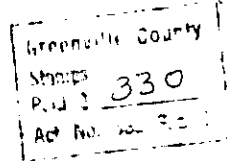 Greenville County
Stamps
Paid $ 330
Act No.